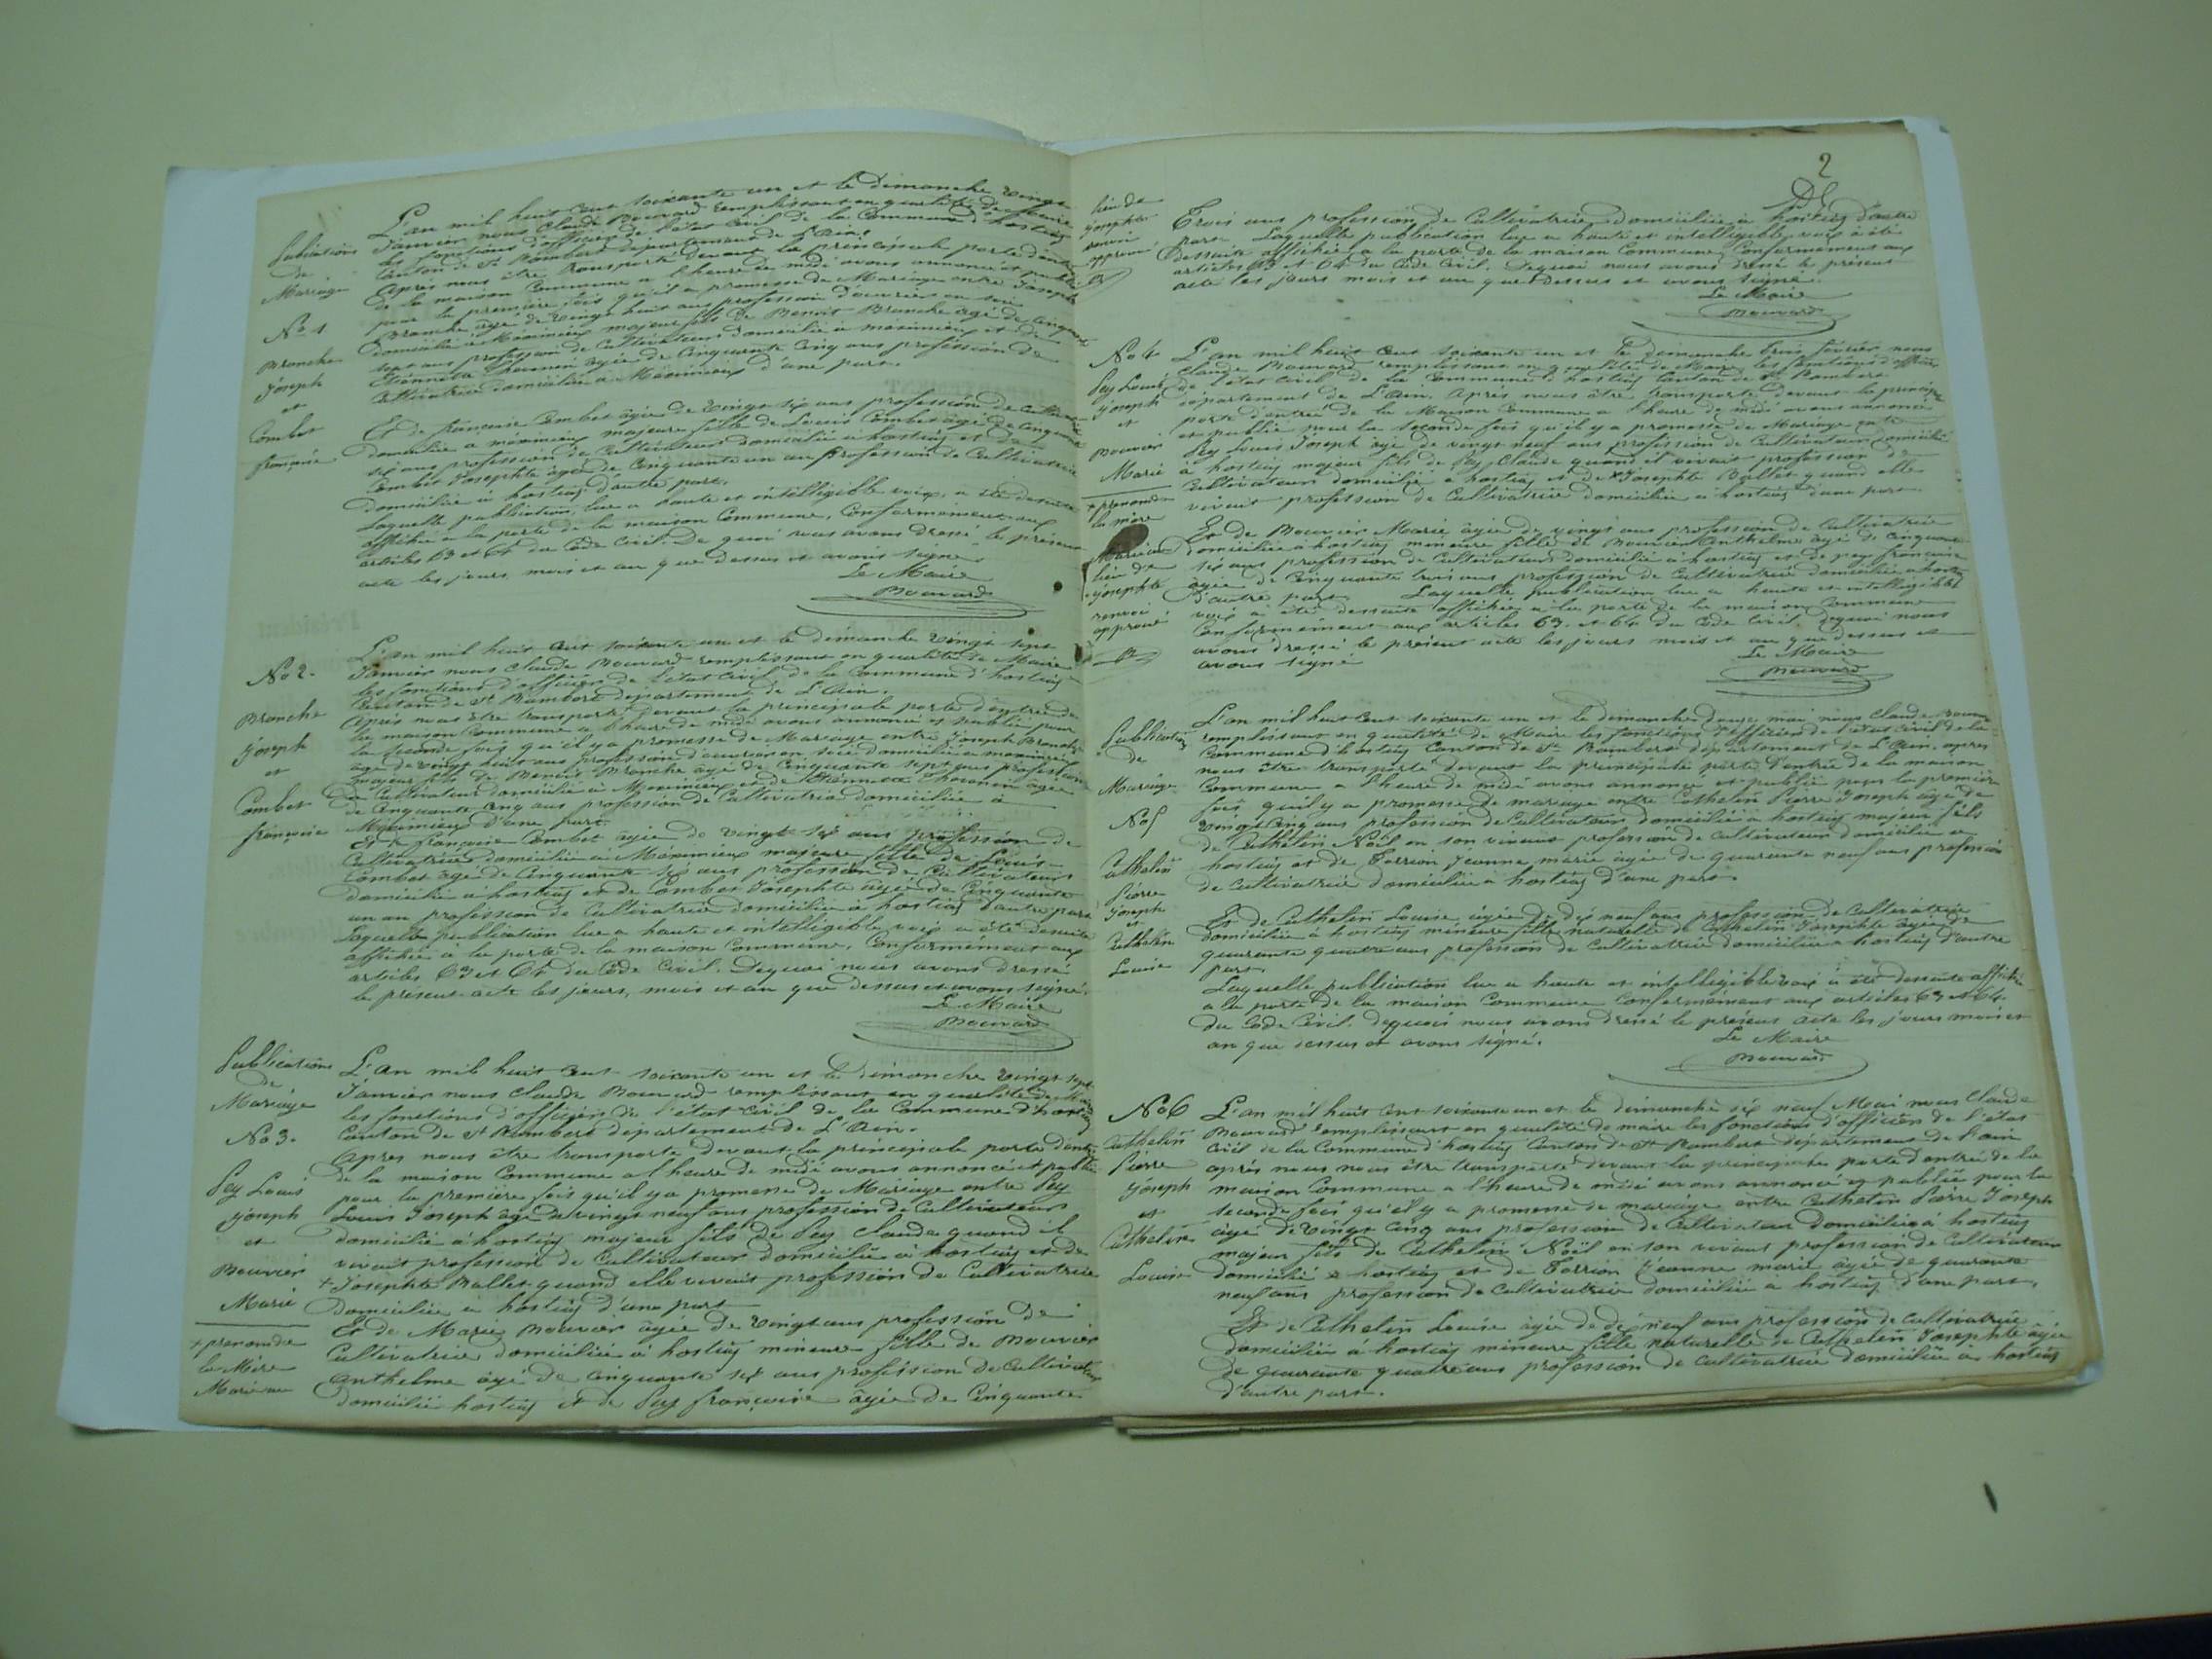 Publications
de
Mariage
No 1
Branche
Joseph
et
Combet
françoise
L'an mil huit cent soixante un et le dimanche vingt
Janvier nous Claude Bouvard remplissant en qualité de Maire
les fonctions d'officier de l'état civil de la Commune d'hostiaz
Canton de St Rambert département de L'Ain.
Après nous être transporté devant la principale porte d'entrée
de la maison Commune a l'heure de midi avons annoncé et publié
pour la première fois qu'il y a promesse de Mariage entre Joseph
Branche âgé de vingt huit ans profession d'ouvrier en soie
domicilié à Méximieux majeur fils de Benoit Branche âgé de cinquante
sept ans profession de Cultivateur domicilié a méximieux et de
Etiennette Thomen agée de Cinquante Cinq ans profession de
Cultivatrice domiciliée à Méximieux d'une part.
Et de françoise Combet âgée de vingt six ans profession de Cultivatrice
domiciliée a méximieux majeure fille de Louis Combet âgé de Cinquante
six ans profession de Cultivateur domicilié a hostiaz et de
Combet Josephte âgée de Cinquante un an profession de Cultivatrice
domiciliée à hostiaz d'autre part.
Laquelle publication lue a haute et intelligible voix, a été dessuite
affichée a la porte de la maison Commune, Conformément aux
articles 63 et 64 du Code Civil. De quoi nous avons dressé le présent
acte les jours, mois et an que dessus et avons signé
Le Maire
Bouvard
No 2.
Branche
Joseph
et
Combet
françoise
L'an mil huit cent soixante un et le dimanche vingt sept
Janvier nous Claude Bouvard remplissant en qualité de Maire
les fonctions d'officier de l'état civil de la Commune d'hostiaz
Canton de St Rambert département de L'Ain.
Après nous être transporté devant la principale porte d'entrée de
la maison Commune a l'heure de midi avons annoncé et publié pour
la seconde fois qu'il y a promesse de Mariage entre Joseph Branche
âgé de vingt huit ans profession d'ouvrier en soie domicilié a méximieux
majeur fils de Benoit Branche âgé de Cinquante sept ans profession
de Cultivateur domicilié a Méximieux et de Etiennette Thomen agée
de Cinquante Cinq ans profession de Cultivatrice domiciliée à
Méximieux d'une part.
Et de françoise Combet âgée de vingt six ans profession de
Cultivatrice domiciliée à Méximieux majeure fille de Louis
Combet âgé de Cinquante six ans profession de Cultivateur
domicilié à hostiaz et de Combet Josephte âgée de Cinquante
un an profession de Cultivatrice domiciliée à hostiaz d'autre part
Laquelle publication lue a haute et intelligible voix a été dessuite
affichée à la porte de la maison Commune, Conformément aux
articles 63 et 64 du Code Civil. Dequoi nous avons dressé
le présent acte les jours, mois et an que dessus et avons signé.
Le Maire
Bouvard
Publications
de
Mariage
No 3.
Pey Louis
Joseph
et
Bouvier
Marie
+ prenom de
la Mère
Marie au
L'an mil huit cent soixante un et le dimanche vingt sept
Janvier nous Claude Bouvard remplissant en qualité de Maire
les fonctions d'officier de l'état civil de la Commune d'hostiaz
Canton de St Rambert département de L'Ain.
Après nous être transporté devant la principale porte d'entrée
de la maison Commune a l'heure de midi avons annoncé et publié
pour la première fois qu'il y a promesse de Mariage entre Pey
Louis Joseph âgé de vingt neuf ans profession de Cultivateur
domicilié à hostiaz majeur fils de Pey Claude quand il
vivait profession de Cultivateur domicilié à hostiaz et de
+ Josephte Ballet quand elle vivait profession de Cultivatrice
domiciliée à hostiaz d'une part
Et de Marie Bouvier âgée de vingt ans profession de
Cultivatrice domiciliée à hostiaz mineure fille de Bouvier
Anthelme âgé de Cinquante six ans profession de Cultivateur
domicilié hostiaz et de Pey françoise âgée de Cinquante
2
lieu de
Josephte
renvoi
approuvé
Trois ans profession de Cultivatrice domiciliée à hostiaz d'autre
part. Laquelle publication lue a haute et intelligible voix a été
Dessuite affichée a la porte de la maison Commune Conformément aux
articles 63 et 64 du Code Civil. Dequoi nous avons dressé le présent
acte les jours mois et an que dessus et avons signé.
Le Maire
Bouvard
No 4
Pey Louis
Joseph
et
Bouvier
Marie
+ prenom de
la mère
Marie au
lieu de
Josephte
renvoi
approuvé
L'an mil huit cent soixante un et le dimanche trois février nous
Claude Bouvard remplissant en qualité de Maire les fonctions d'officier
de l'état civil de la Commune d'hostiaz Canton de St Rambert
département de L'Ain. Après nous être transporté devant la principale
porte d'entrée de la Maison Commune a l'heure de midi avons annoncé
et publié pour la seconde fois qu'il y a promesse de Mariage entre
Pey Louis Joseph âgé de vingt neuf ans profession de Cultivateur domicilié
à hostiaz majeur fils de Pey Claude quand il vivait profession de
Cultivateur domicilié a hostiaz et de + Josephte Ballet quand elle
vivait profession de Cultivatrice domiciliée à hostiaz d'une part.
Et de Bouvier Marie âgée de vingt ans profession de Cultivatrice
domiciliée à hostiaz mineure fille de Bouvier Anthelme âgé de Cinquante
six ans profession de Cultivateur domicilié à hostiaz et de pey françoise
âgée de Cinquante trois ans profession de Cultivatrice domiciliée a hostiaz
d'autre part. Laquelle publication lue a haute et intelligible
voix a été dessuite affichée à la porte de la maison Commune
Conformément aux articles 63 et 64 du Code Civil. Dequoi nous
avons dressé le présent acte les jours mois et an que dessus et
avons signé
Le Maire
Bouvard
Publications
de
Mariage
No 5
Cathelin
Pierre
Joseph
et
Cathelin
Louise
L'an mil huit cent soixante un et le dimanche douze mai nous Claude Bouvard
remplissant en qualité de Maire les fonctions d'officier de l'état civil de la
Commune d'hostiaz Canton de St Rambert département de L'Ain, après
nous être transporté devant la principale porte d'entrée de la maison
Commune a l'heure de midi avons annoncé et publié pour la première
fois qu'il y a promesse de mariage entre Cathelin Pierre Joseph âgé de
vingt Cinq ans profession de Cultivateur domicilié a hostiaz majeur fils
de Cathelin Noël en son vivant profession de Cultivateur domicilié a
hostiaz et de Torrion Jeanne marie âgée de quarante neuf ans profession
de Cultivatrice domiciliée à hostiaz d'une part.
Et de Cathelin Louise âgée de dix neuf ans profession de Cultivatrice
domiciliée à hostiaz mineure fille naturelle de Cathelin Josephte âgée de
quarante quatre ans profession de Cultivatrice domiciliée a hostiaz d'autre
part.
Laquelle publication lue a haute et intelligible voix a été dessuite affichée
a la porte de la maison Commune Conformément aux articles 63 et 64.
du Code Civil. dequoi nous avons dressé le présent acte les jours mois et
an que dessus et avons signé.
Le Maire
Bouvard
No 6
Cathelin
Pierre
Joseph
et
Cathelin
Louise
L'an mil huit cent soixante un et le dimanche dix neuf Mai nous Claude
Bouvard remplissant en qualité de maire les fonctions d'officier de l'état
Civil de la Commune d'hostiaz Canton de St Rambert département de l'ain
après nous nous être transporté devant la principale porte d'entrée de la
maison Commune a l'heure de midi avons annoncé et publié pour la
seconde fois qu'il y a promesse de mariage entre Cathelin Pierre Joseph
âgé de vingt Cinq ans profession de Cultivateur domicilié à hostiaz
majeur fils de Cathelin Noël en son vivant profession de Cultivateur
domicilié a hostiaz et de Torrion Jeanne marie âgée de quarante
neuf ans profession de Cultivatrice domiciliée a hostiaz d'une part.
Et de Cathelin Louise âgée de dix neuf ans profession de Cultivatrice
domiciliée à hostiaz mineure fille naturelle de Cathelin Josephte âgée
de quarante quatre ans profession de Cultivatrice domiciliée à hostiaz
d'autre part.